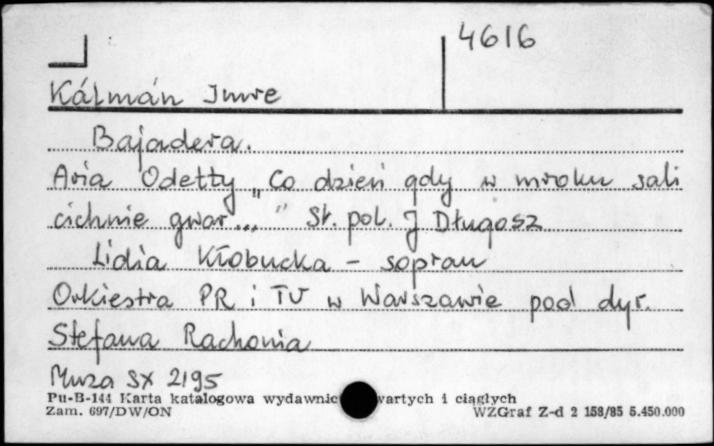 4616
Kálmán Imre
Bajadera.
Aria Odetty „Co dzień gdy w mroku sali
cichnie gwar..." Sł. pol. J Długosz
Lidia Kłobucka - sopran
Orkiestra PR i TV w Warszawie pod dyr.
Stefana Rachonia
Muza SX 2195
Pu-B-144 Karta katalogowa wydawnic wartych i ciągłych
Zam. 697/DW/ON WZGraf Z-d 2 158/85 5.450.000